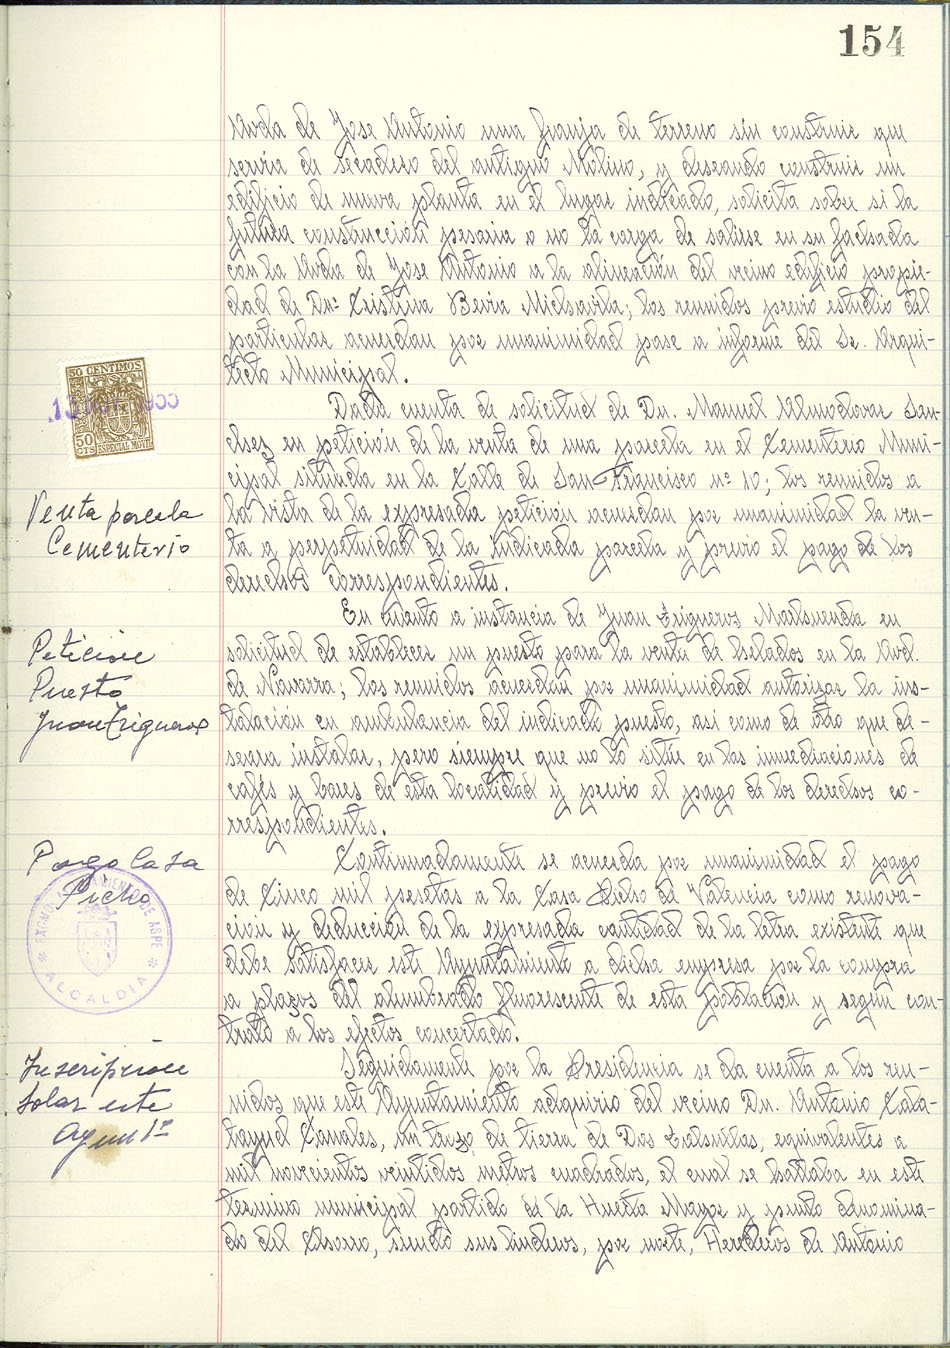 154
Avda de Jose Antonio una franja de terreno sin construir que
servia de secadero del antiguo Molino, y deseando construir un
edificio de nueva planta en el lugar indicado, solicita sobre si la
futura construcción pesaria o no la carga de salirse en su fachada
con la Avda de Jose Antonio a la alineación del vecino edificio propie-
dad de Dnª Cristina; los reunidos previo estudio del
particular acuerdan por unanimidad pase a informe del Sr. Arqui-
tecto Municipal.
50 CENTIMOS
50 CTS ESPECIAL MOVIL
Dada cuenta de solicitud de Dn. Manuel Almodovar San-
chez en petición de la venta de una parcela en el Cementerio Muni-
cipal situada en la Calle de San Francisco nº 10; los reunidos a
Venta parcela
Cementerio
la vista de la expresada petición acuerdan por unanimidad la ven-
ta a perpetuidad de la indicada parcela y previo el pago de los
derechos correspondientes.
En cuanto a instancia de Juan Trigueros Maluenda en
Peticion
Puesto
Juan Trigueros
solicitud de establecer un puesto para la venta de helados en la Avd.
de Navarra; los reunidos acuerdan por unanimidad autorizar la ins-
talación en ambulancia del indicado puesto, asi como de otro que de-
seara instalar, pero siempre que no lo sitúe en las inmediaciones de
cafés y bares de esta localidad y previo el pago de los derechos co-
rrespondientes.
Pago Casa
Picho
EXCMO. AYUNTAMIENTO DE ASPE
ALCALDIA
Continuadamente se acuerda por unanimidad el pago
de Cinco mil pesetas a la Casa de Valencia como renova-
ción y deducción de la expresada cantidad de la letra existente que
debe satisfacer este Ayuntamiento a dicha empresa por la compra
a plazos del alumbrado fluorescente de esta población y según con-
trato a los efectos concertado.
Inscripcion
Solar este
Aymu to
Seguidamente por la Presidencia se da cuenta a los reu-
nidos que este Ayuntamiento adquirio del vecino Dn. Antonio Cala-
tayud Canales, un trozo de tierra de Dos Tahullas, equivalentes a
mil novecientos veintidos metros cuadrados, el cual se hallaba en este
termino municipal partido de la Huerta Mayor y punto denomina-
do del Chorro, siendo sus linderos, por norte, Herederos de Antonio